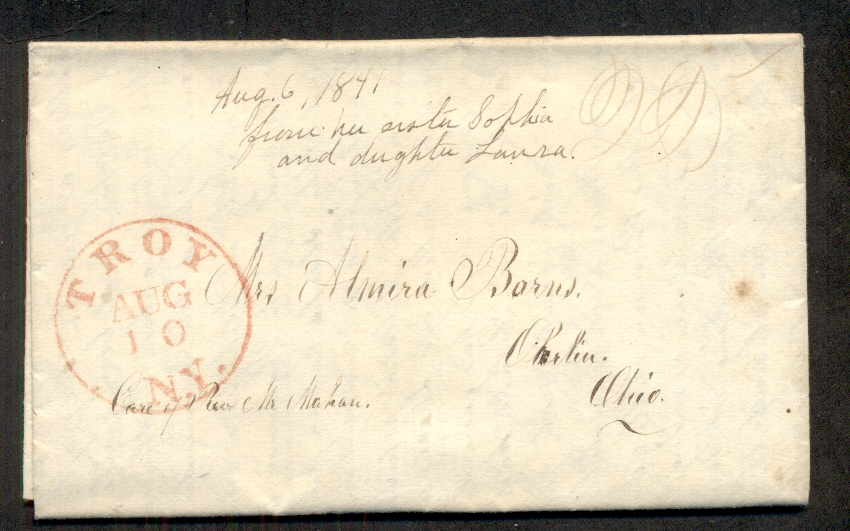 Aug. 6, 1841
from her sister Sophia
and dughter Laura.
TROY
AUG
10
N.Y.
Mrs Almira Barns.
Oberlin.
Ohio.
Care of Rev Mr Mahan.